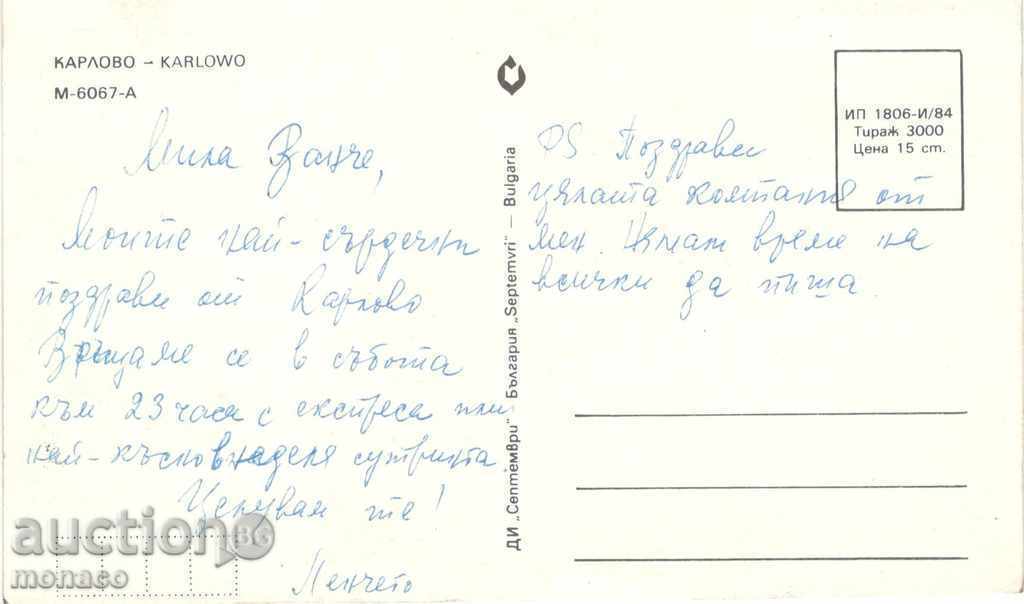 КАРЛОВО – KARLOWO
М-6067-А
Мила Ванче,
Моите най-сърдечни
поздрави от Карлово.
Връщаме се в събота
към 23 часа с експреса или
най-късно в неделя сутринта.
Целувам те!
Ленчето
ДИ „Септември" България „Septemvri" – Bulgaria
ИП 1806-И/84
Тираж 3000
Цена 15 ст.
PS. Поздрави
цялата компания от
мен. Нямам време на
всички да пиша.
auction.BG
monaso